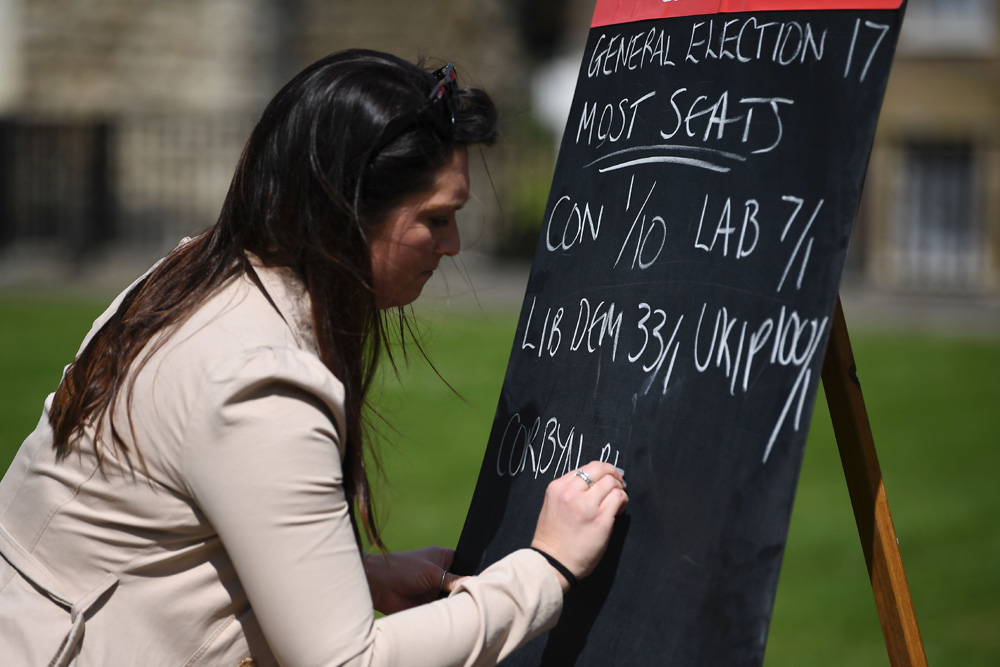 GENERAL ELECTION 17
MOST SEATS
CON 1/10 LAB 7/1
LIB DEM 33/1 UKIP 100/1
CORBYN